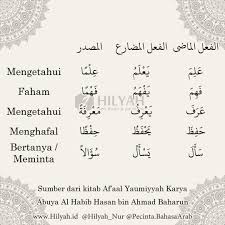 الفعل الماضى الفعل المضارع المصدر
Mengetahui عَلِمَ يَعْلَمُ عِلْمًا
Faham فَهِمَ يَفْهَمُ فَهْمًا
Mengetahui عَرَفَ يَعْرِفُ مَعْرِفَةً
Menghafal حَفِظَ يَحْفَظُ حِفْظًا
Bertanya /
Meminta سَأَلَ يَسْأَلُ سُؤَالًا
HILYAH
Sumber dari kitab Af'aal Yaumiyyah Karya
Abuya Al Habib Hasan bin Ahmad Baharun
www.Hilyah.id @Hilyah_Nur @Pecinta.BahasaArab